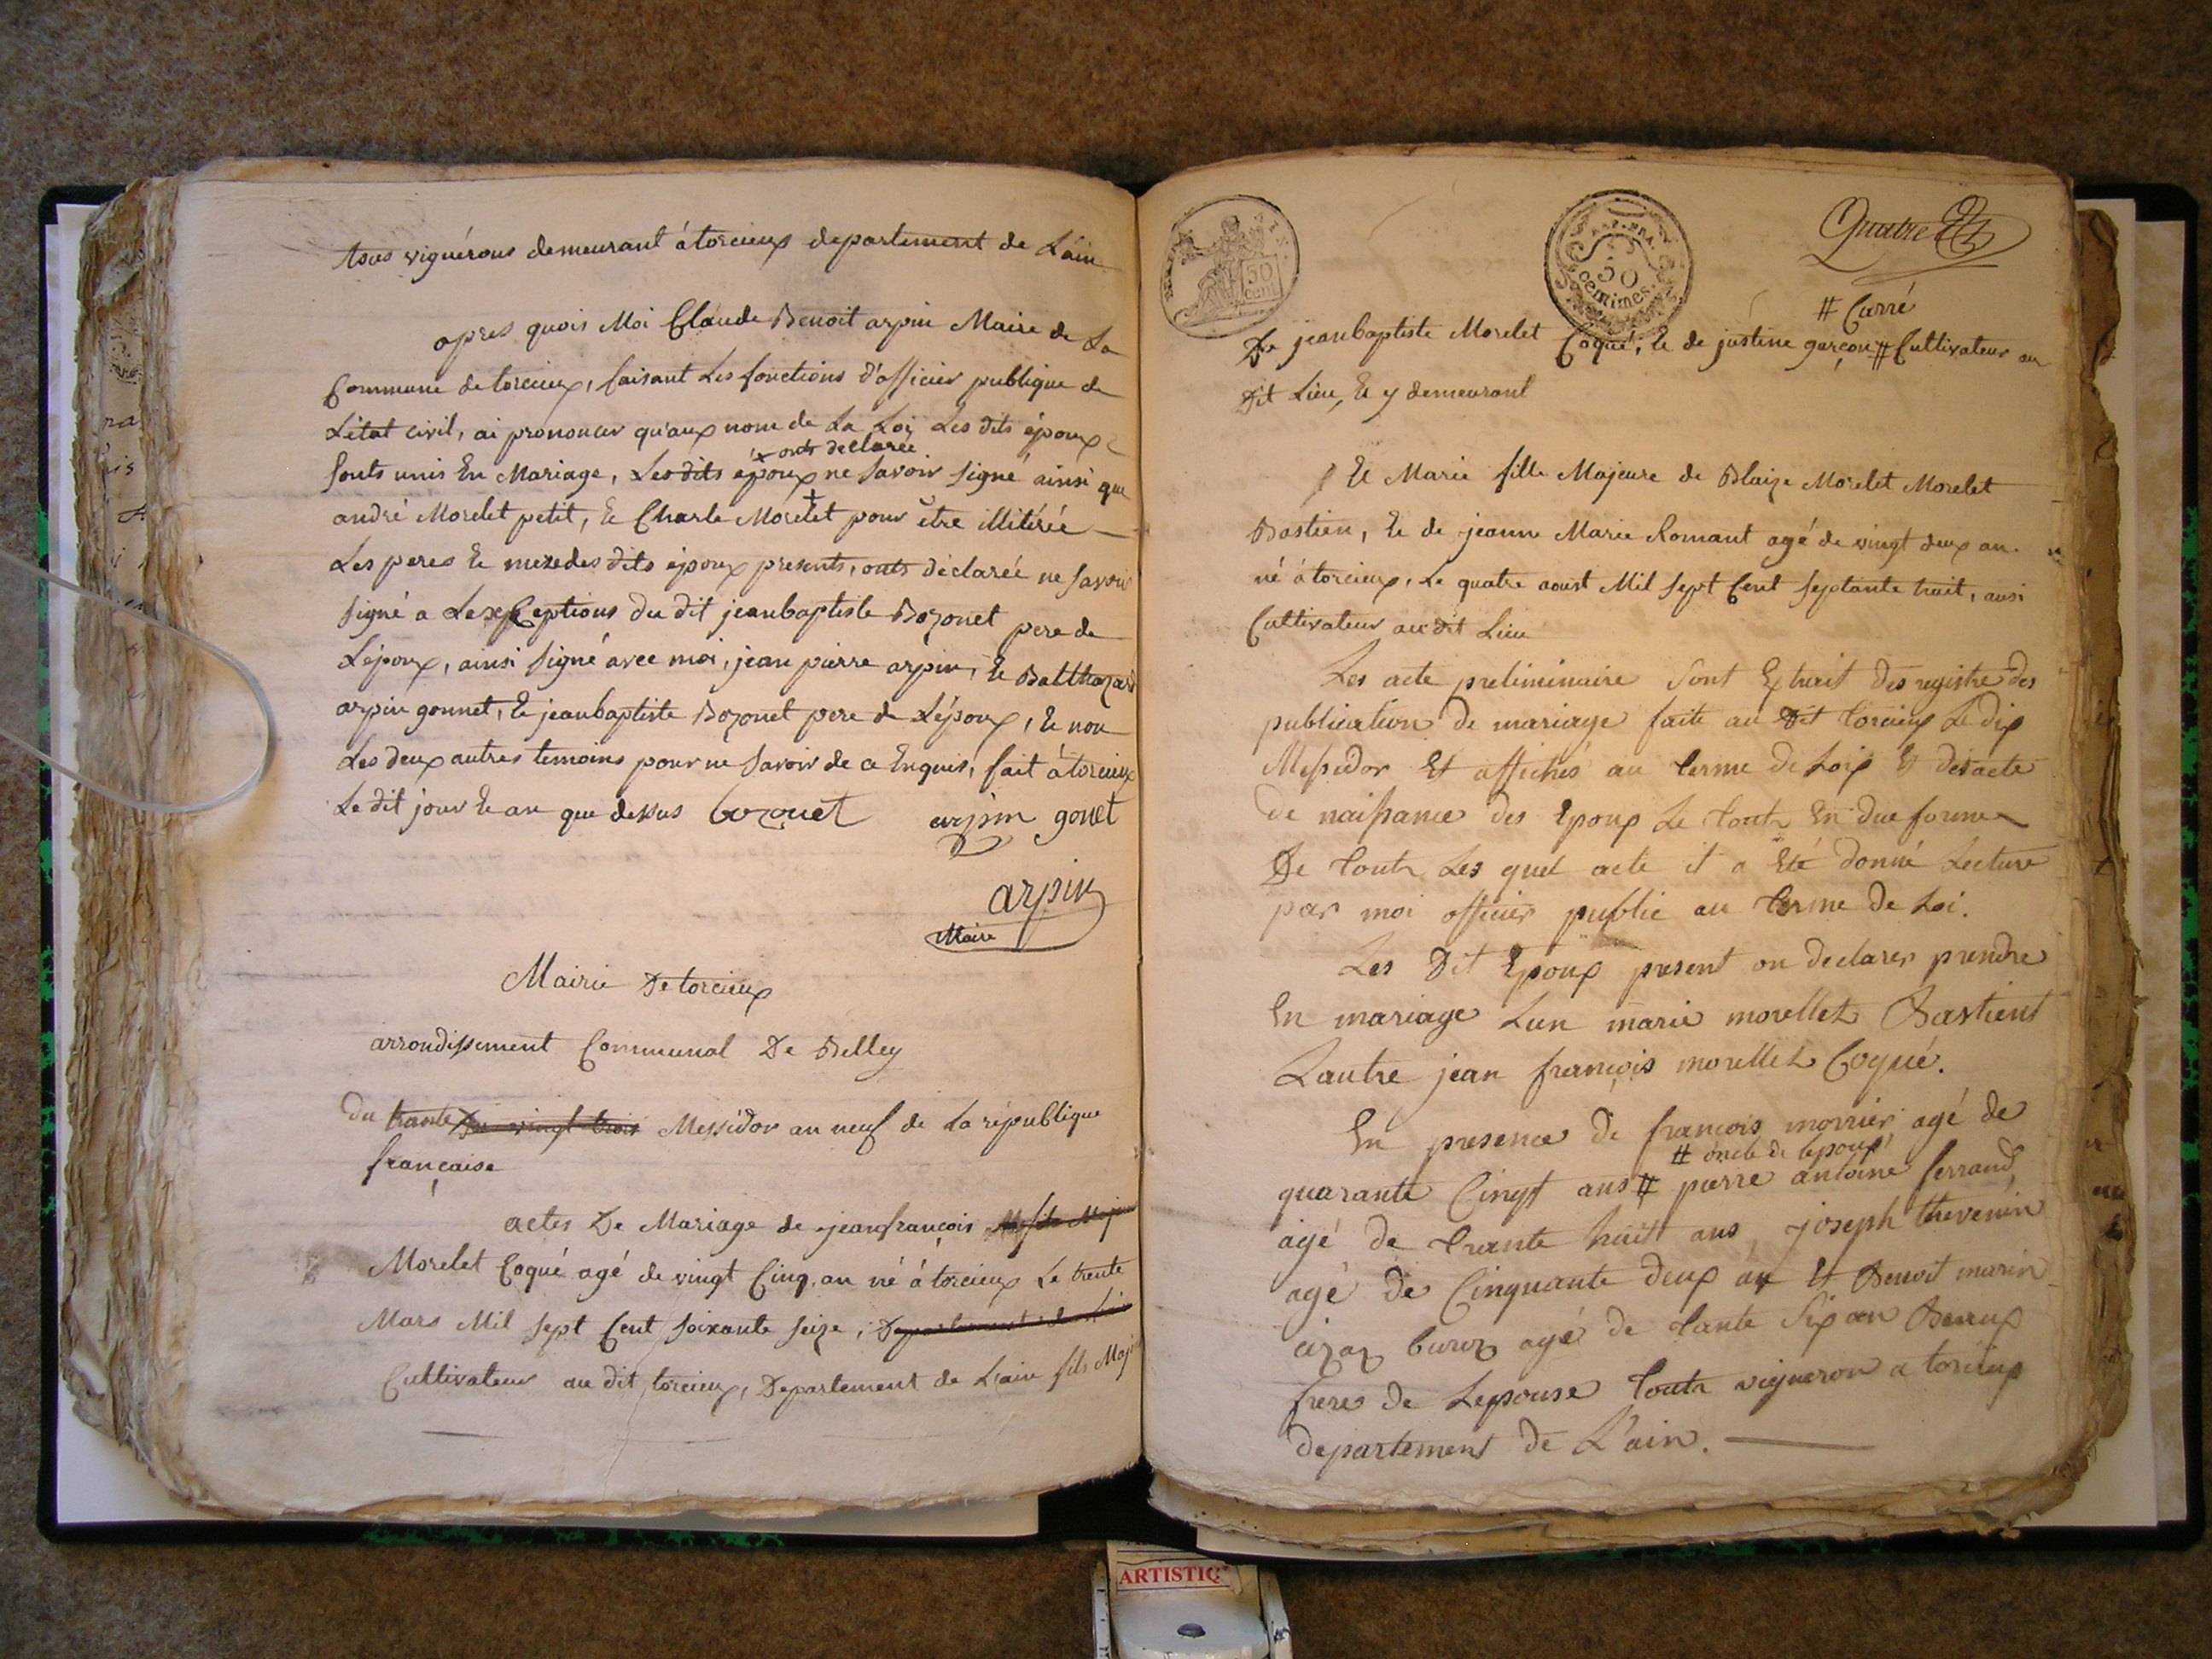 tous vignérons demeurant á torcieux departement de L'ain
apres quois Moi Claude Benoit arpin Maire de La
Commune de torcieux, faisant Les fonctions d'officier publique de
L'état civil, ai prononcer qu'aux nom de La Loi Les dits époux
x onts declarée
sonts unis En Mariage, Les dits époux ne savoir signé ainsi que
andré Morelet petit, Et Charle Morelet pour être illitérée
Les peres Et mere des dits époux presents, onts déclarée ne savoir
signé a Lexceptions du dit jeanbaptiste Bozonet pere de
L'époux, ainsi signé avec moi, jean pierre arpin, Et Balthazard
arpin gonnet, Et jeanbaptiste Bozonet pere de L'époux, Et non
Les deux autres temoins pour ne savoir de ce Enquis, fait á torcieux
Le dit jour Et an que dessus bozonet arpin gonet
arpin
Maire
Mairie De torcieux
arrondissement Communal De Belley
du trante Du vingt trois Messidor an neuf de La république
française
actes De Mariage de jeanfrançois
Morelet Coqué agé de vingt Cinq an né á torcieux Le trente
Mars Mil sept Cent soixante seize, Departement de L'ain
Cultivateur au dit torcieux, Departement de L'ain fils Majeur
50 cent
50
centimes.
Quatre
# Carré
De jeanbaptiste Morelet Coqué, Et de justine garçon # Cultivateur au
Dit Lieu, Et y demeurant
Et Marie fille Majeure de Blaize Morelet Morelet
Bastien, Et de jeanne Marie Romant agé de vingt deux an
né á torcieux, Le quatre aoust Mil sept Cent septante huit, ausi
Cultivateur au dit Lieu
Les acte preliminaire sont Extrait des registre des
publication de mariage faite au Dit torcieux Le dix
Messidor Et affichés au terme de Loix Et des acte
de naissance des Epoux Le tout En due forme
De tout Les quel acte il a Eté donné Lecture
par moi officier public au terme de Loi.
Les Dit Epoux present on declarer prendre
En mariage Lun marie morellet Bastient
Lautre jean françois morellet Coqué.
En presence de françois morrier agé de
# oncle de lepoux
quarante Cinqt ans # pierre antoine ferrand,
agé de trante huit ans joseph thevenin
agé de Cinquante deux an Et Benoit marin
agé de tante six an Beaux
frere de Lepouse tout vigneron a torcieux
departement de L'ain.
ARTISTIQ